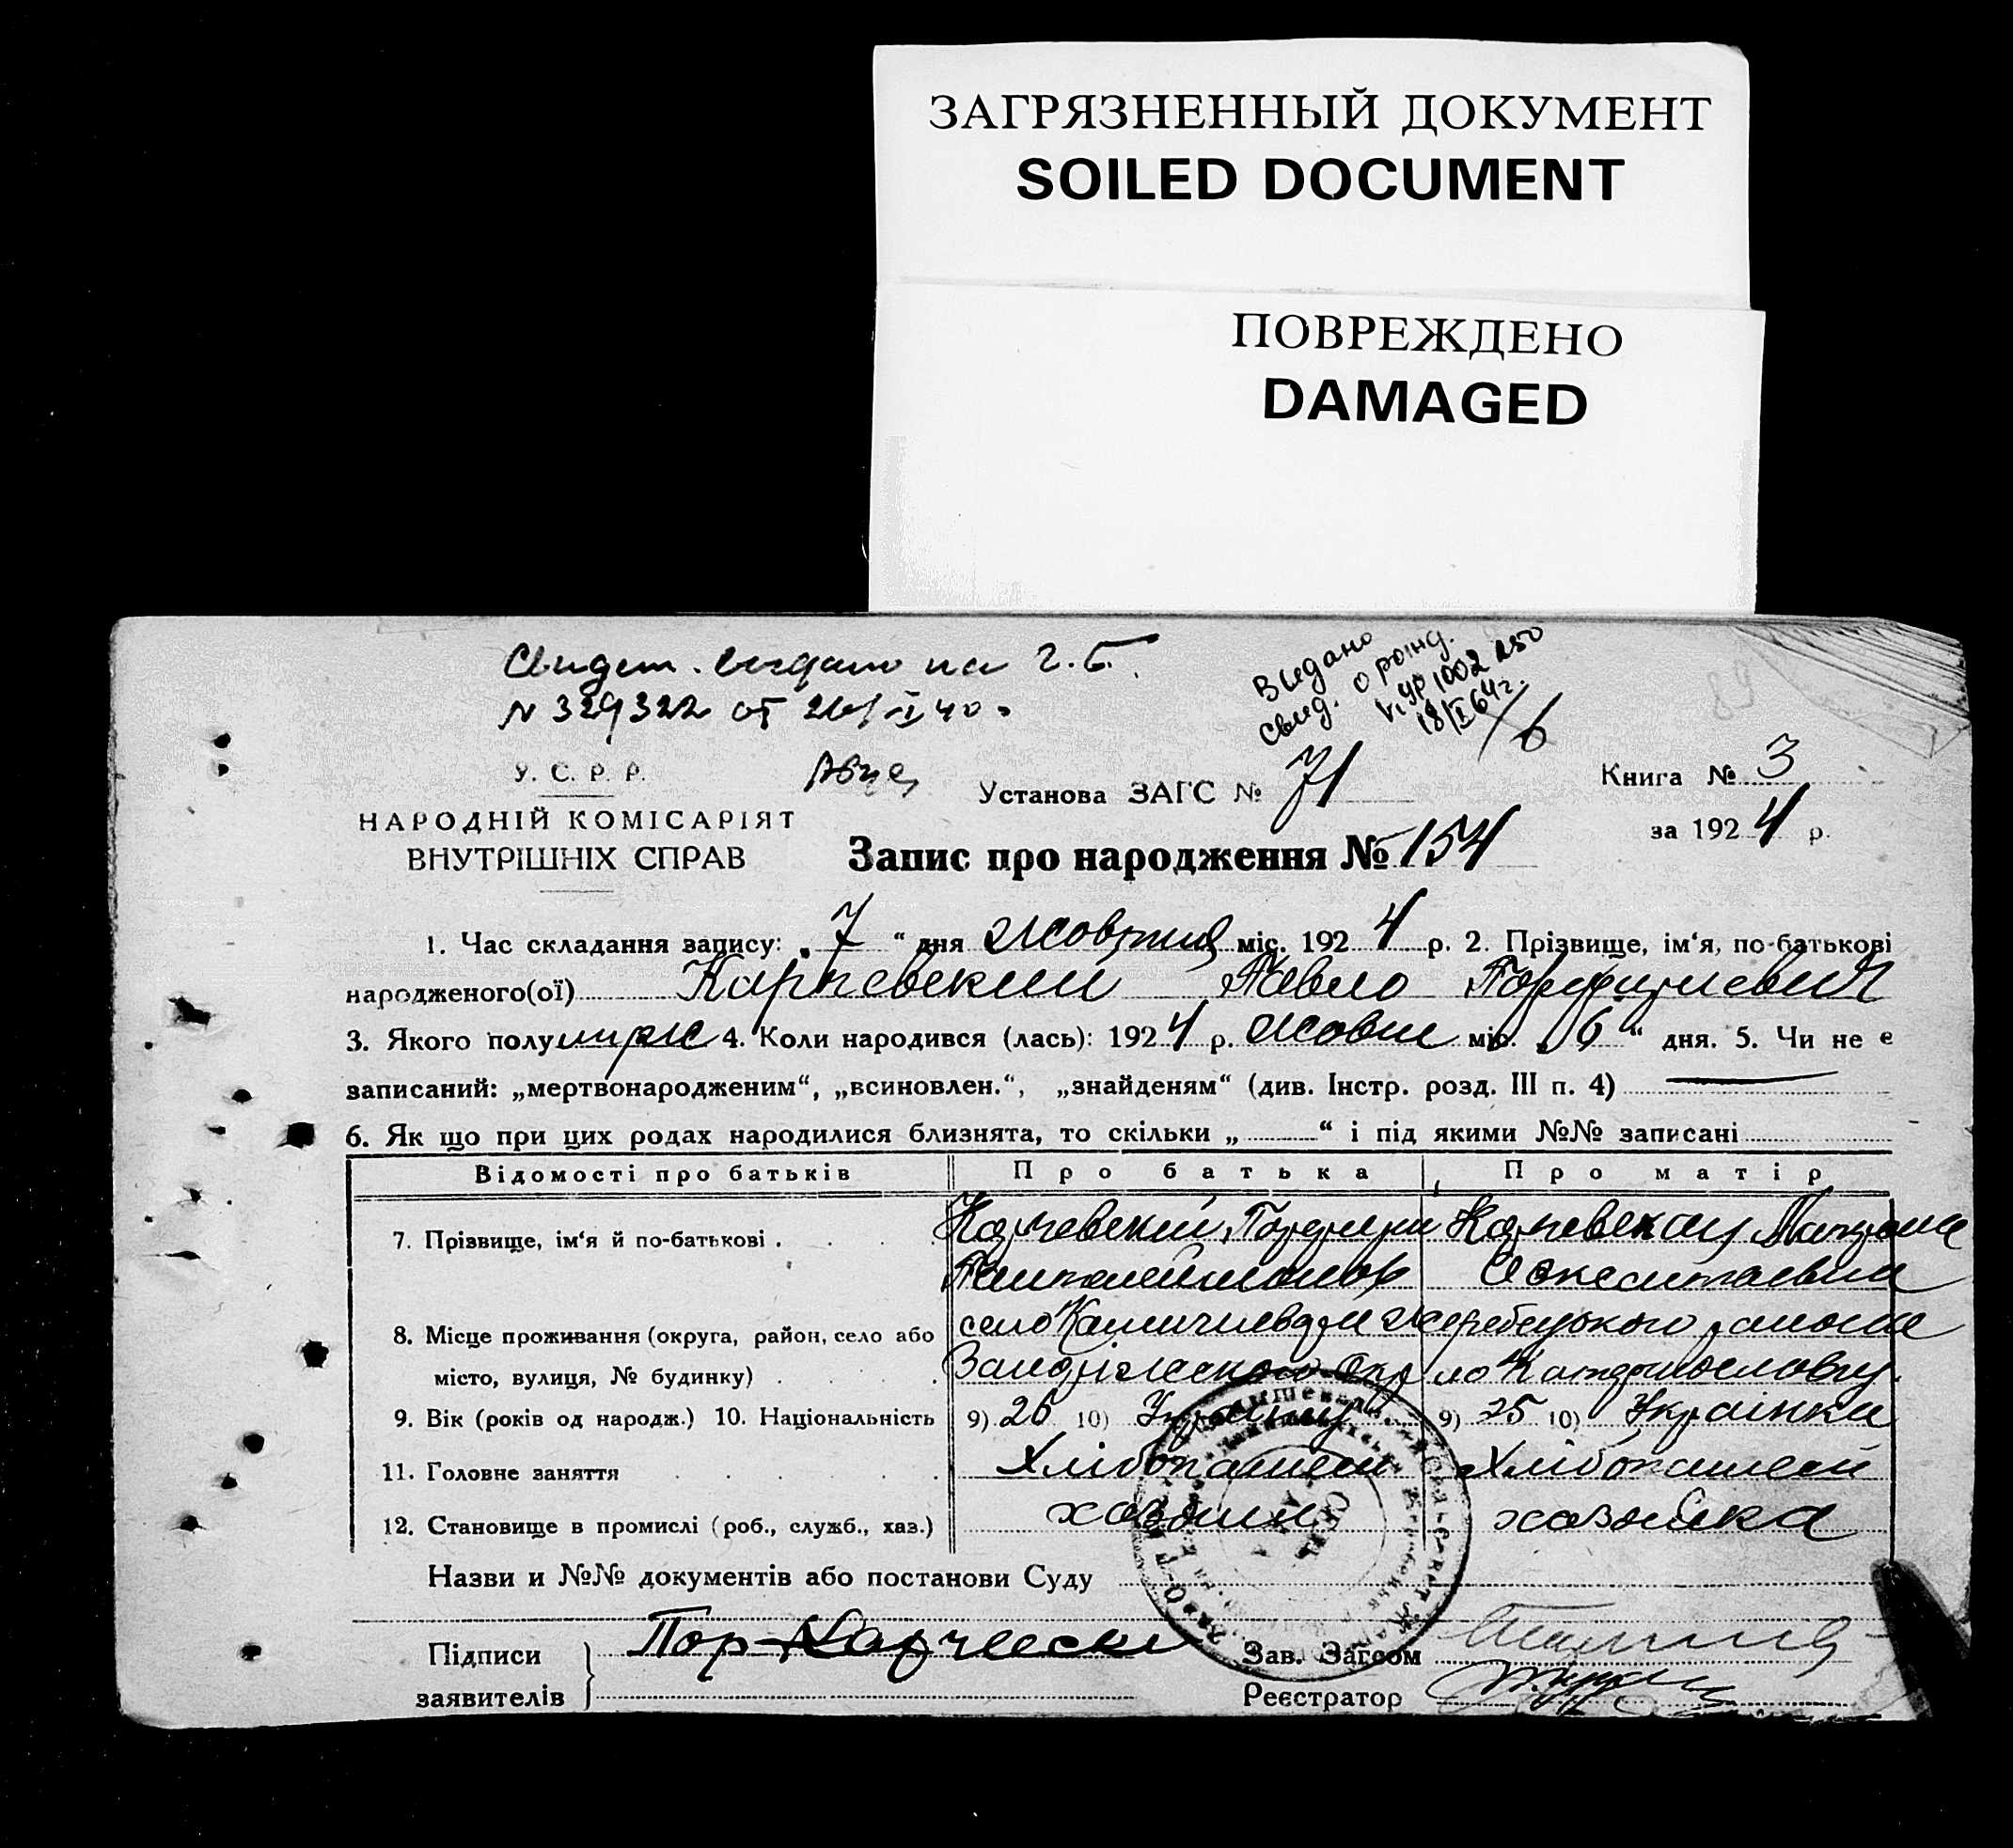 ЗАГРЯЗНЕННЫЙ ДОКУМЕНТ
SOILED DOCUMENT
ПОВРЕЖДЕНО
DAMAGED
Выдано
свид. о рожд.
18/I 64г.
№ 329322 от 26/I 40.
У. С. Р. Р.
Установа ЗАГС № 71
Книга № 3
НАРОДНІЙ КОМІСАРІЯТ
ВНУТРІШНІХ СПРАВ
за 1924 р.
Запис про народження № 154
1. Час складання запису: „7“ дня Жовтня міс. 1924 р. 2. Прізвище, ім‘я, по-батькові
народженого(ої) Карчевский Павло Порфириевич
3. Якого полу муж 4. Коли народився (лась): 1924 р. Жовт міс. „6“ дня. 5. Чи не є
записаний: „мертвонародженим“, „всиновлен.“, „знайденям“ (див. Інстр. розд. III п. 4)
6. Як що при цих родах народилися близнята, то скільки „ “ і під якими №№ записані
Відомості про батьків Про батька Про матір
7. Прізвище, ім‘я й по-батькові . Карчевский Порфири Карчевская
8. Місце проживання (округа, район, село або село Жеребецького района
місто, вулиця, № будинку)
9. Вік (років од народж.) 10. Національність 9) 26 10) 9) 25 10) Українка
11. Головне заняття Хлібопашест Хлібопашест
12. Становище в промислі (роб., служб., хаз.) хозяин хозяйка
Назви и №№ документів або постанови Суду
Підписи
заявителів
Пор Карчевски
Зав. Загсом
Реєстратор